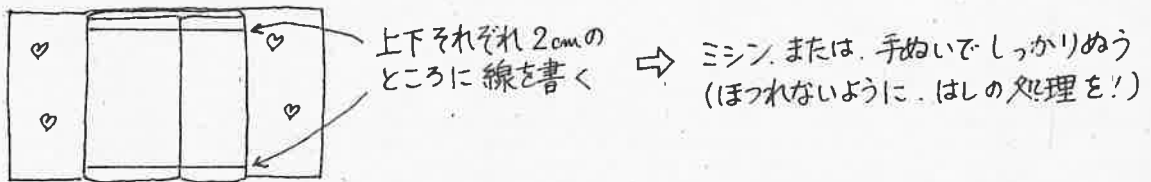 上下それぞれ2cmの
ところに線を書く
⇨ ミシン.または.手ぬいでしっかりぬう
(ほつれないように.はしの処理を!)